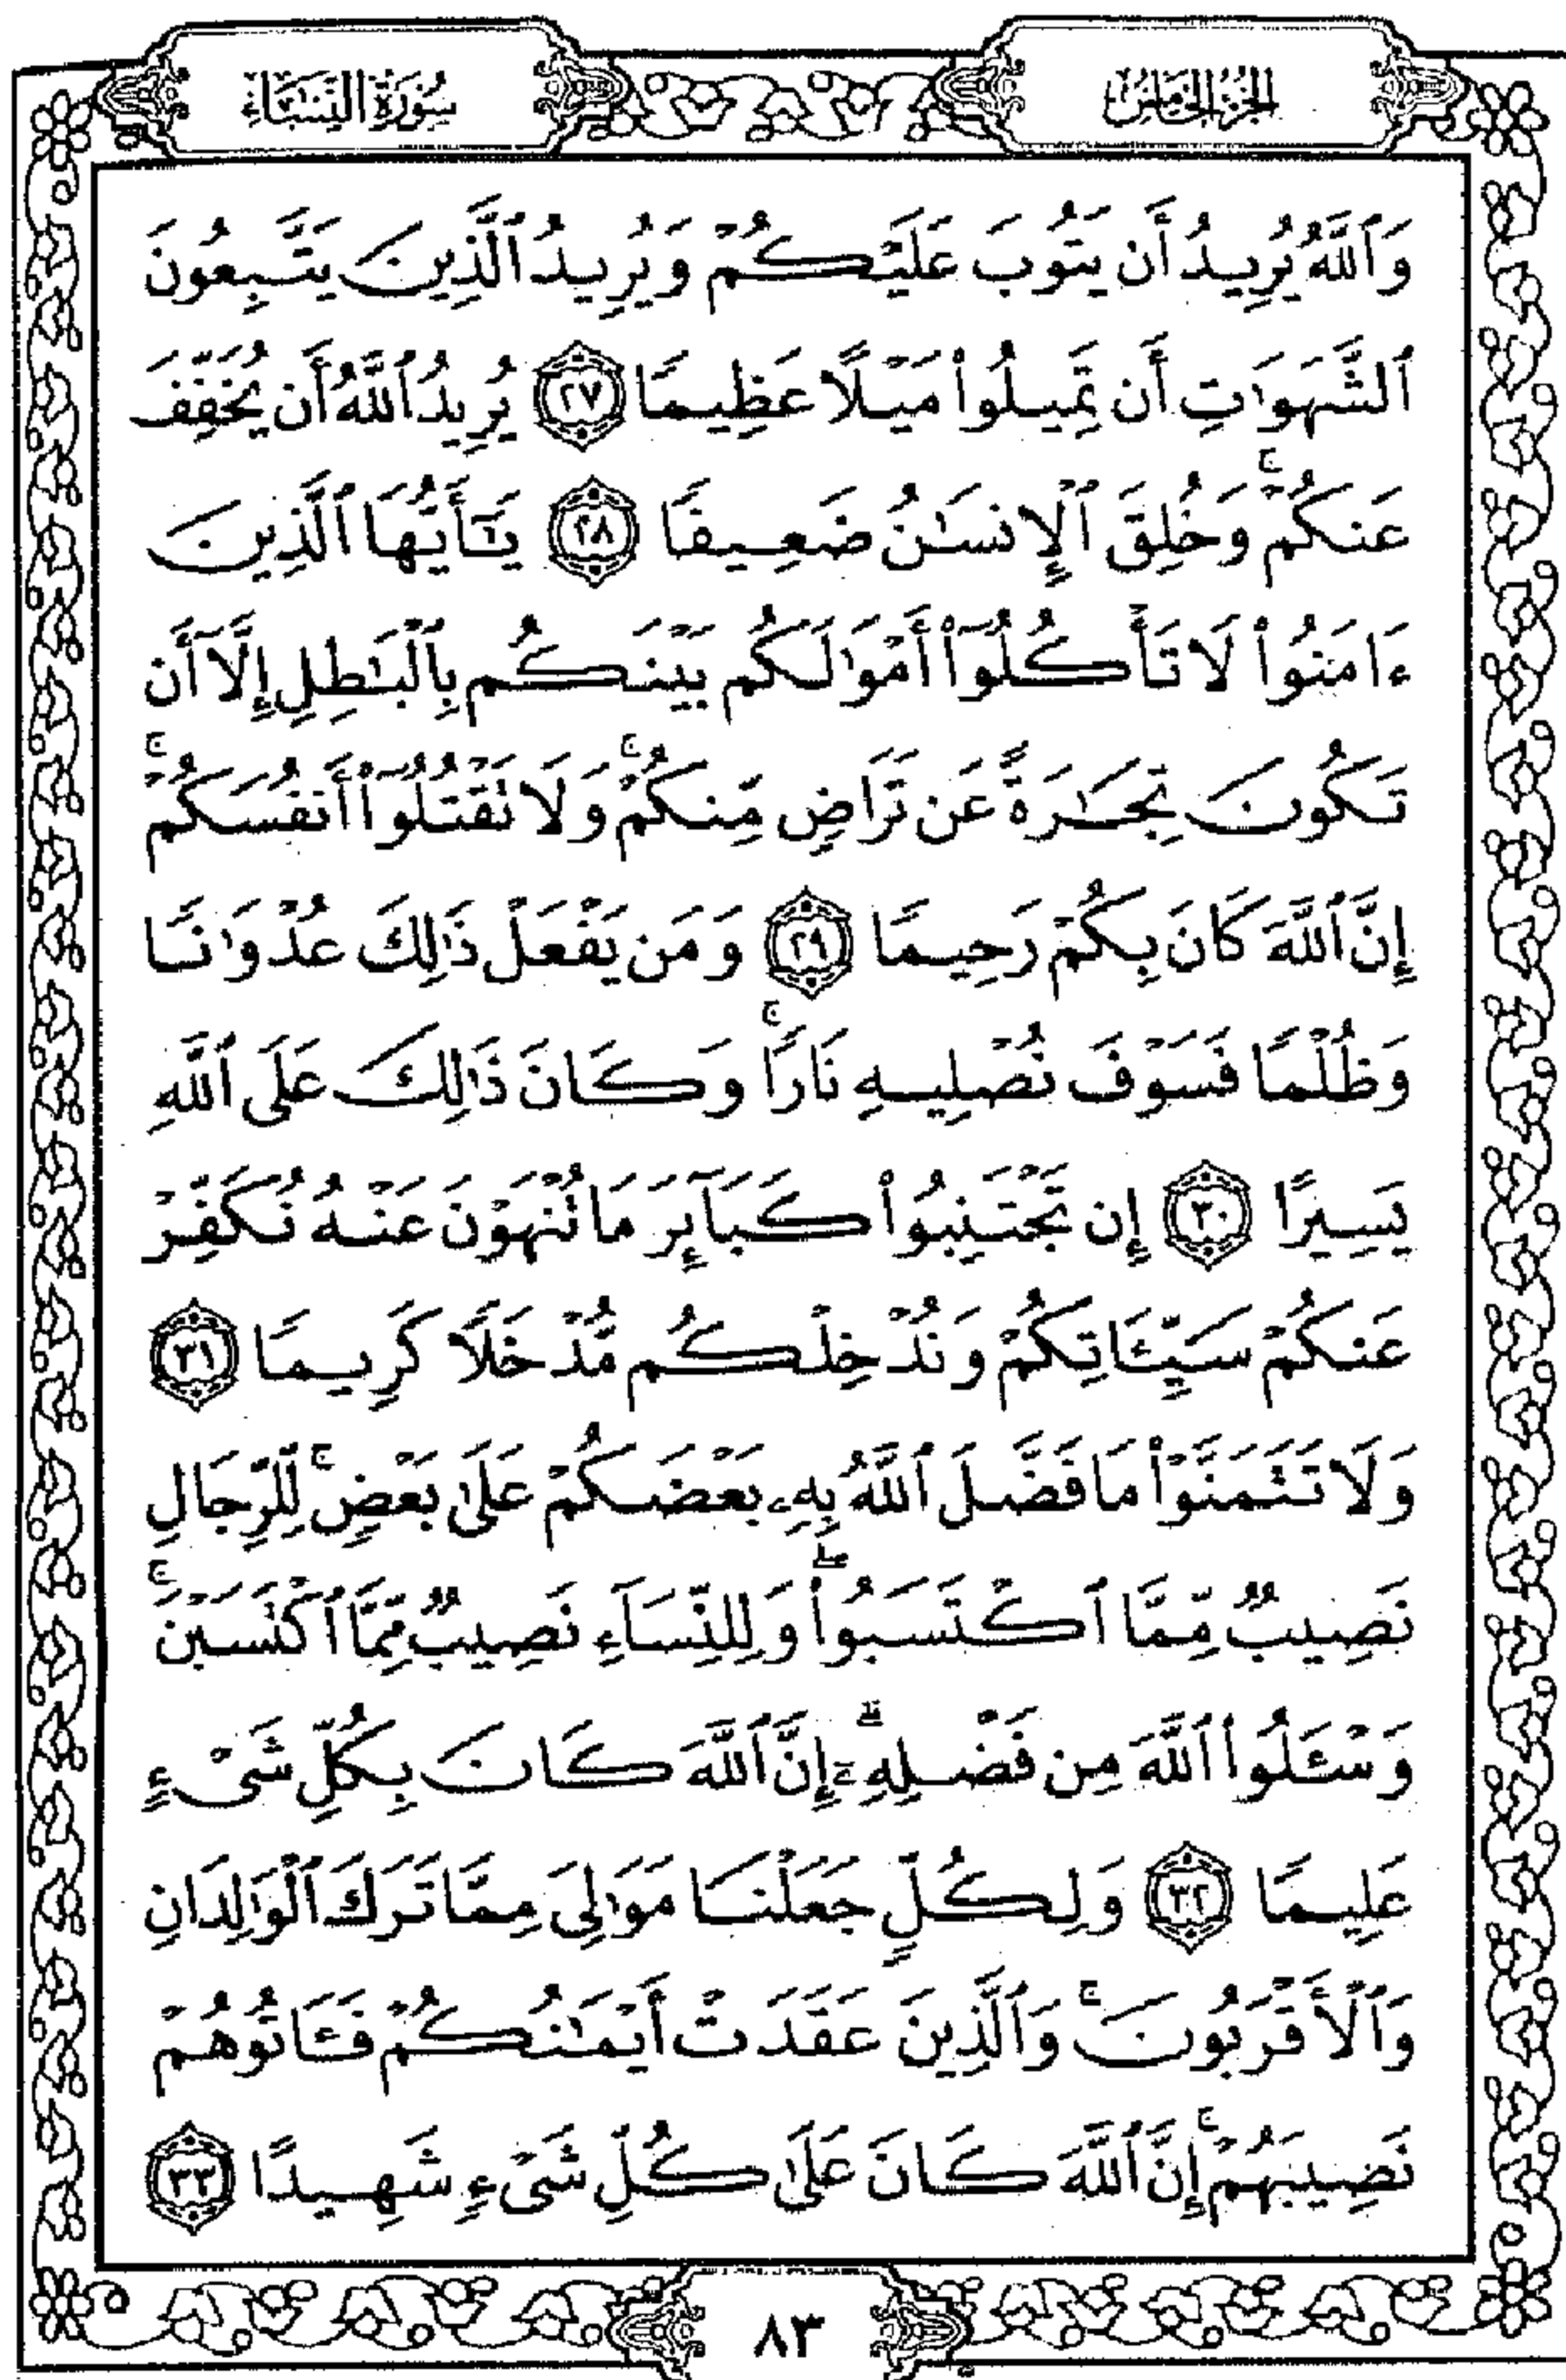 الجزء الخامس
سورة النساء
وَٱللَّهُ يُرِيدُ أَن يَتُوبَ عَلَيْكُمْ وَيُرِيدُ ٱلَّذِينَ يَتَّبِعُونَ
ٱلشَّهَوَٰتِ أَن تَمِيلُوا۟ مَيْلًا عَظِيمًا ٢٧ يُرِيدُ ٱللَّهُ أَن يُخَفِّفَ
عَنكُمْ ۚ وَخُلِقَ ٱلْإِنسَٰنُ ضَعِيفًا ٢٨ يَٰٓأَيُّهَا ٱلَّذِينَ
ءَامَنُوا۟ لَا تَأْكُلُوٓا۟ أَمْوَٰلَكُم بَيْنَكُم بِٱلْبَٰطِلِ إِلَّآ أَن
تَكُونَ تِجَٰرَةً عَن تَرَاضٍ مِّنكُمْ ۚ وَلَا تَقْتُلُوٓا۟ أَنفُسَكُمْ ۚ
إِنَّ ٱللَّهَ كَانَ بِكُمْ رَحِيمًا ٢٩ وَمَن يَفْعَلْ ذَٰلِكَ عُدْوَٰنًا
وَظُلْمًا فَسَوْفَ نُصْلِيهِ نَارًا ۚ وَكَانَ ذَٰلِكَ عَلَى ٱللَّهِ
يَسِيرًا ٣٠ إِن تَجْتَنِبُوا۟ كَبَآئِرَ مَا تُنْهَوْنَ عَنْهُ نُكَفِّرْ
عَنكُمْ سَيِّـَٔاتِكُمْ وَنُدْخِلْكُم مُّدْخَلًا كَرِيمًا ٣١
وَلَا تَتَمَنَّوْا۟ مَا فَضَّلَ ٱللَّهُ بِهِۦ بَعْضَكُمْ عَلَىٰ بَعْضٍ ۚ لِّلرِّجَالِ
نَصِيبٌ مِّمَّا ٱكْتَسَبُوا۟ ۖ وَلِلنِّسَآءِ نَصِيبٌ مِّمَّا ٱكْتَسَبْنَ ۚ
وَسْـَٔلُوا۟ ٱللَّهَ مِن فَضْلِهِۦٓ ۗ إِنَّ ٱللَّهَ كَانَ بِكُلِّ شَىْءٍ
عَلِيمًا ٣٢ وَلِكُلٍّ جَعَلْنَا مَوَٰلِىَ مِمَّا تَرَكَ ٱلْوَٰلِدَانِ
وَٱلْأَقْرَبُونَ ۚ وَٱلَّذِينَ عَقَدَتْ أَيْمَٰنُكُمْ فَـَٔاتُوهُمْ
نَصِيبَهُمْ ۚ إِنَّ ٱللَّهَ كَانَ عَلَىٰ كُلِّ شَىْءٍ شَهِيدًا ٣٣
٨٣